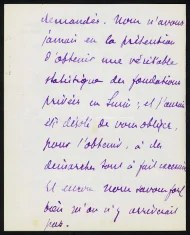 demandés. Nous n'avons
jamais eu la prétention
d'obtenir une véritable
statistique des fondations
privées en Suisse; et j'aurais
été désolé de vous obliger,
pour l'obtenir, à des
démarches tout à fait
Et encore nous savons fort
bien qu'on n'y arriverait
pas.